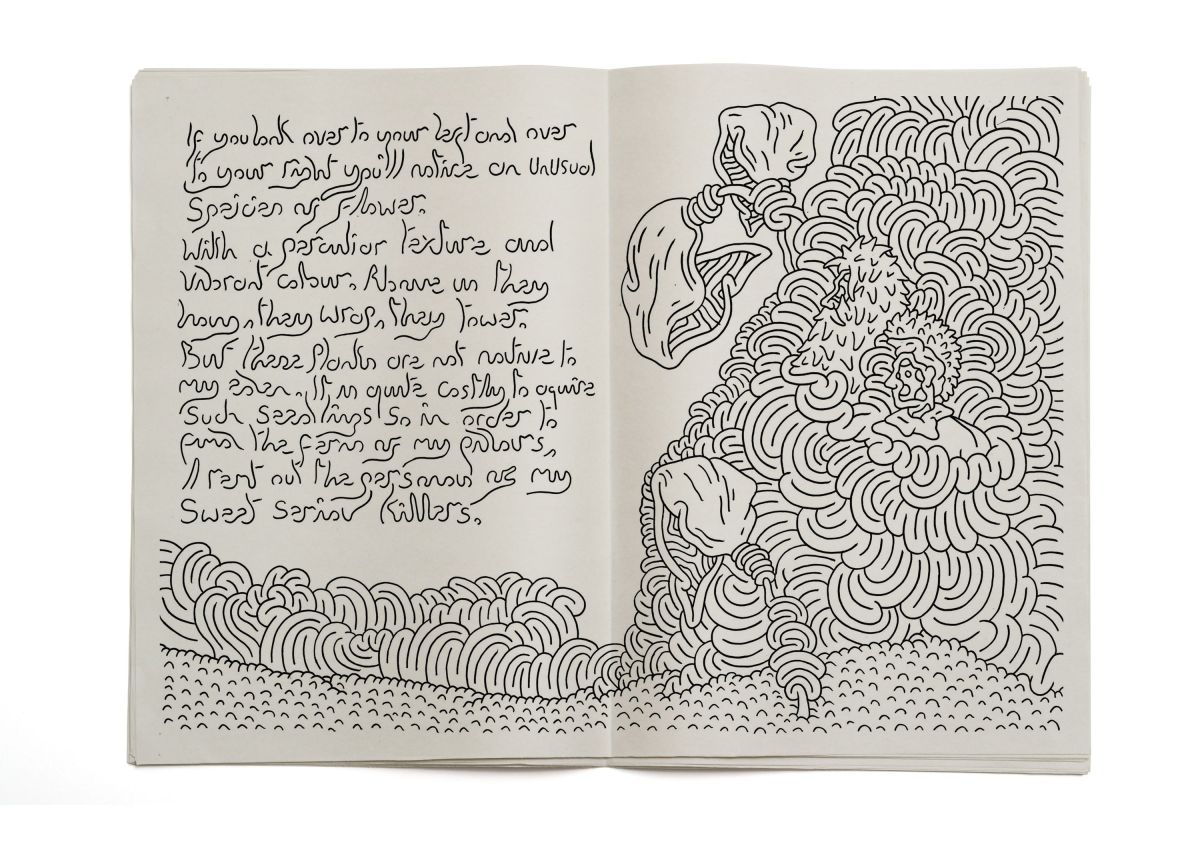 If you look over to your left and over
to your right you'll notice an unusual
Speicies of flower.
With a perculiar texture and
vibrant colour. Rhome us they
hang, they wrap, they tower.
But these plants are not native to
my eden. It is quite costly to aquire
Such seedlings! So in order to
fund the farm of my
I rent out the of my
Sweet Serial killers.